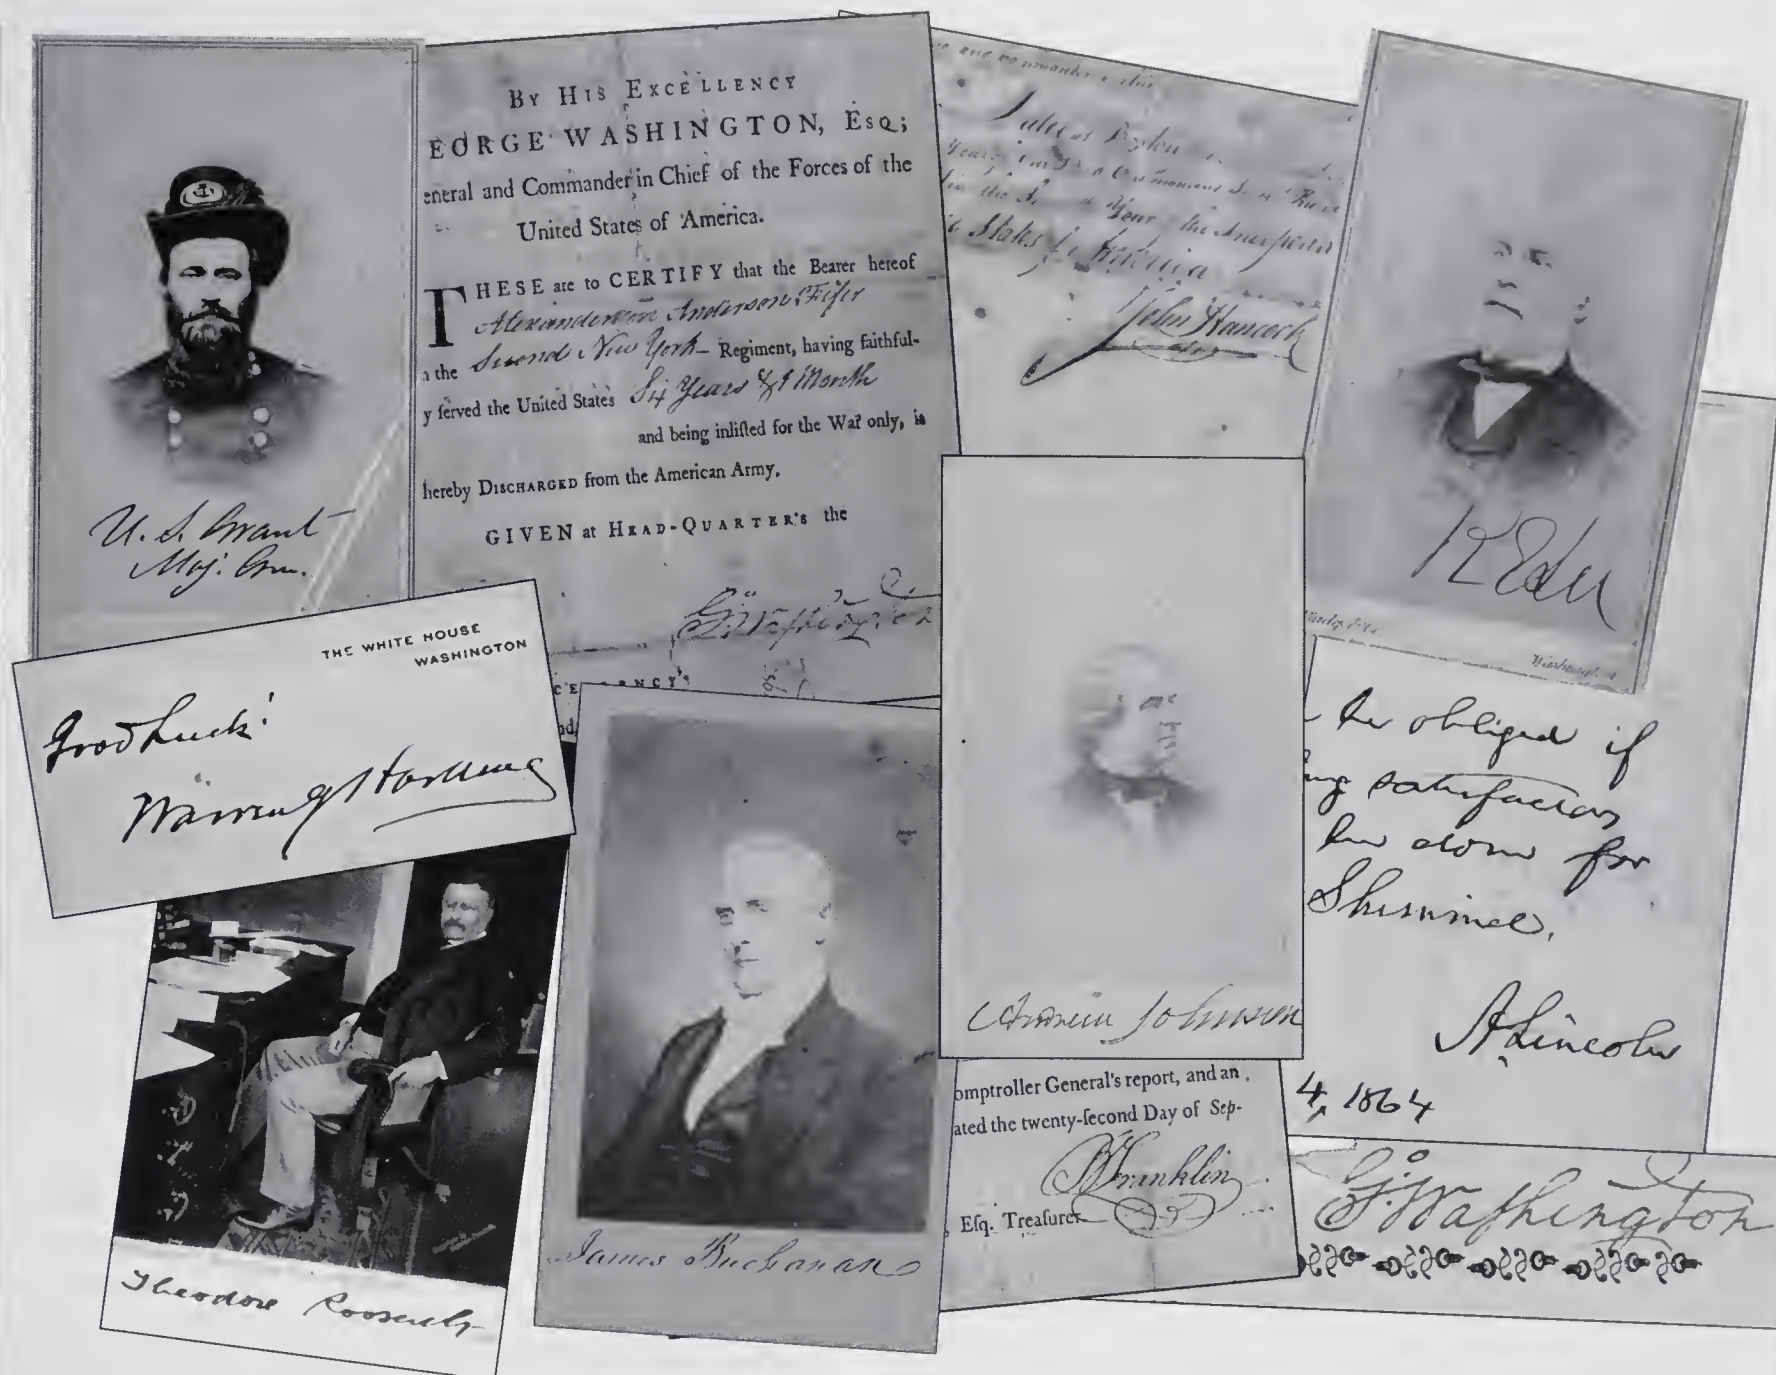 U. S. Grant
Maj. Gen.
BY HIS EXCELLENCY
EORGE WASHINGTON, Esq;
eneral and Commander in Chief of the Forces of the
United States of America.
THESE are to CERTIFY that the Bearer hereof
Anderson Fifer
n the Second New York Regiment, having faithful-
y ſerved the United States Six Years & 1 Month
and being inliſted for the War only, is
hereby DISCHARGED from the American Army.
GIVEN at HEAD-QUARTER's the
G: Washington
States of America
John Hancock
R E Lee
THE WHITE HOUSE
WASHINGTON
Good Luck!
Warren G Harding
Theodore Roosevelt
James Buchanan
Andrew Johnson
be obliged if
satisfactory
be done for
Shimmel.
A. Lincoln
4, 1864
omptroller General's report, and an
ated the twenty-ſecond Day of Sep-
B Franklin
, Eſq. Treaſurer
G: Washington